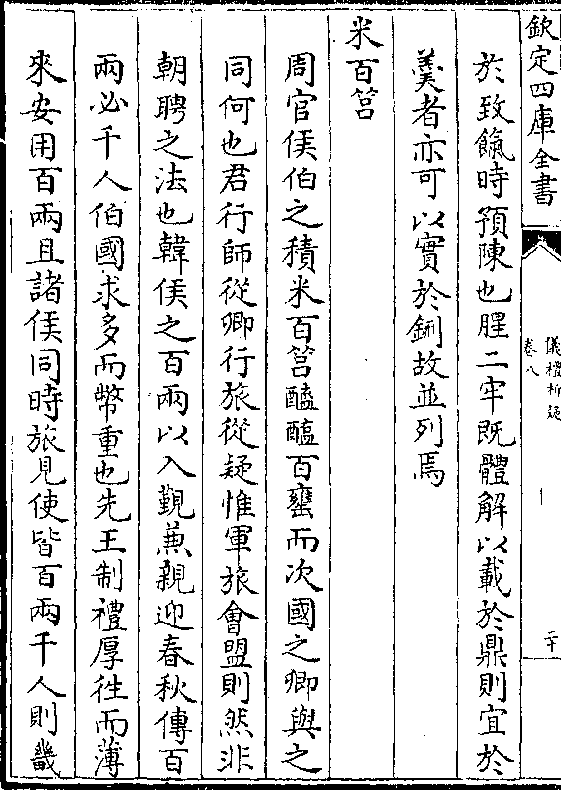 欽定四庫全書
儀禮析疑
卷八
二十
於致餼時預陳也腥二牢既體解以載於鼎則宜於
羮者亦可以實於鉶故並列焉
米百筥
周官侯伯之積米百筥醯醢百罋而次國之卿與之
同何也君行師從卿行旅從疑惟軍旅會盟則然非
朝聘之法也韓侯之百兩以入覲兼親迎春秋傳百
兩必千人伯國求多而幣重也先王制禮厚徃而薄
來安用百兩且諸侯同時旅見使皆百兩千人則畿